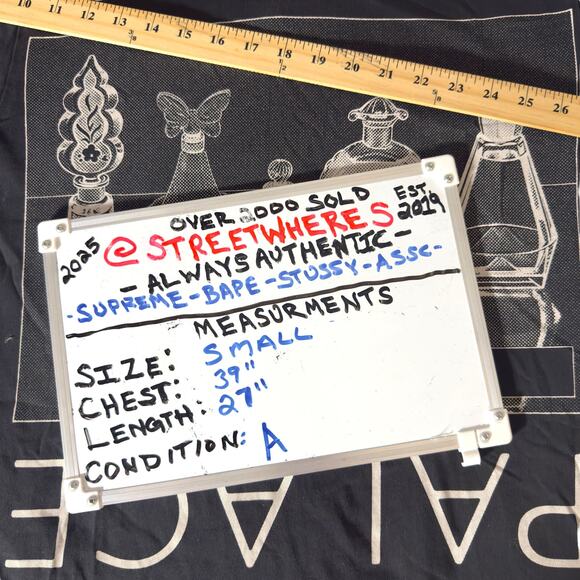 11 12 13 14 15 16 17 18 19 20 21 22 23 24 25 26
3/8 1/2 5/8
OVER 2000 SOLD
2025 @STREETWHERES EST. 2019
- ALWAYS AUTHENTIC -
-SUPREME-BAPE-STUSSY-ASSC-
MEASURMENTS
SIZE: SMALL
CHEST: 39"
LENGTH: 27"
CONDITION: A
PALACE